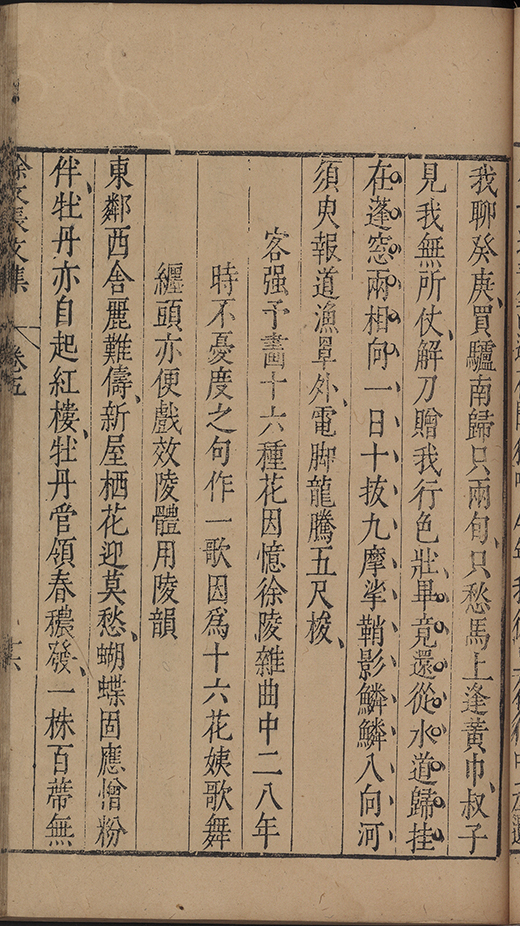 我聊癸庚、買驢南歸只兩旬、只愁馬上逢黃巾、叔子
見我無所仗、解刀贈我行色壯、畢竟還從水道歸挂
在蓬窓兩相向一日十拔九摩挲鞘影鱗鱗入向河
須臾報道漁罩外、電脚龍騰五尺梭、
客强予畫十六種花因憶徐陵雜曲中二八年
時不憂度之句作一歌因爲十六花姨歌舞
纏頭亦便戲效陵體用陵韻
東鄰西舍麗難儔、新屋栖花迎莫愁、蝴蝶固應憎粉
伴、牡丹亦自起紅樓、牡丹管領春穠發、一株百蔕無
徐文長文集
卷五
十六